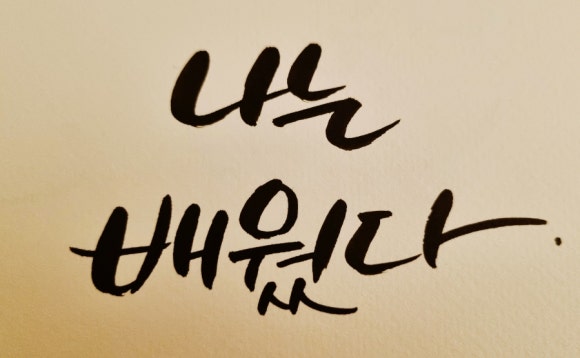 나는
배웠다.